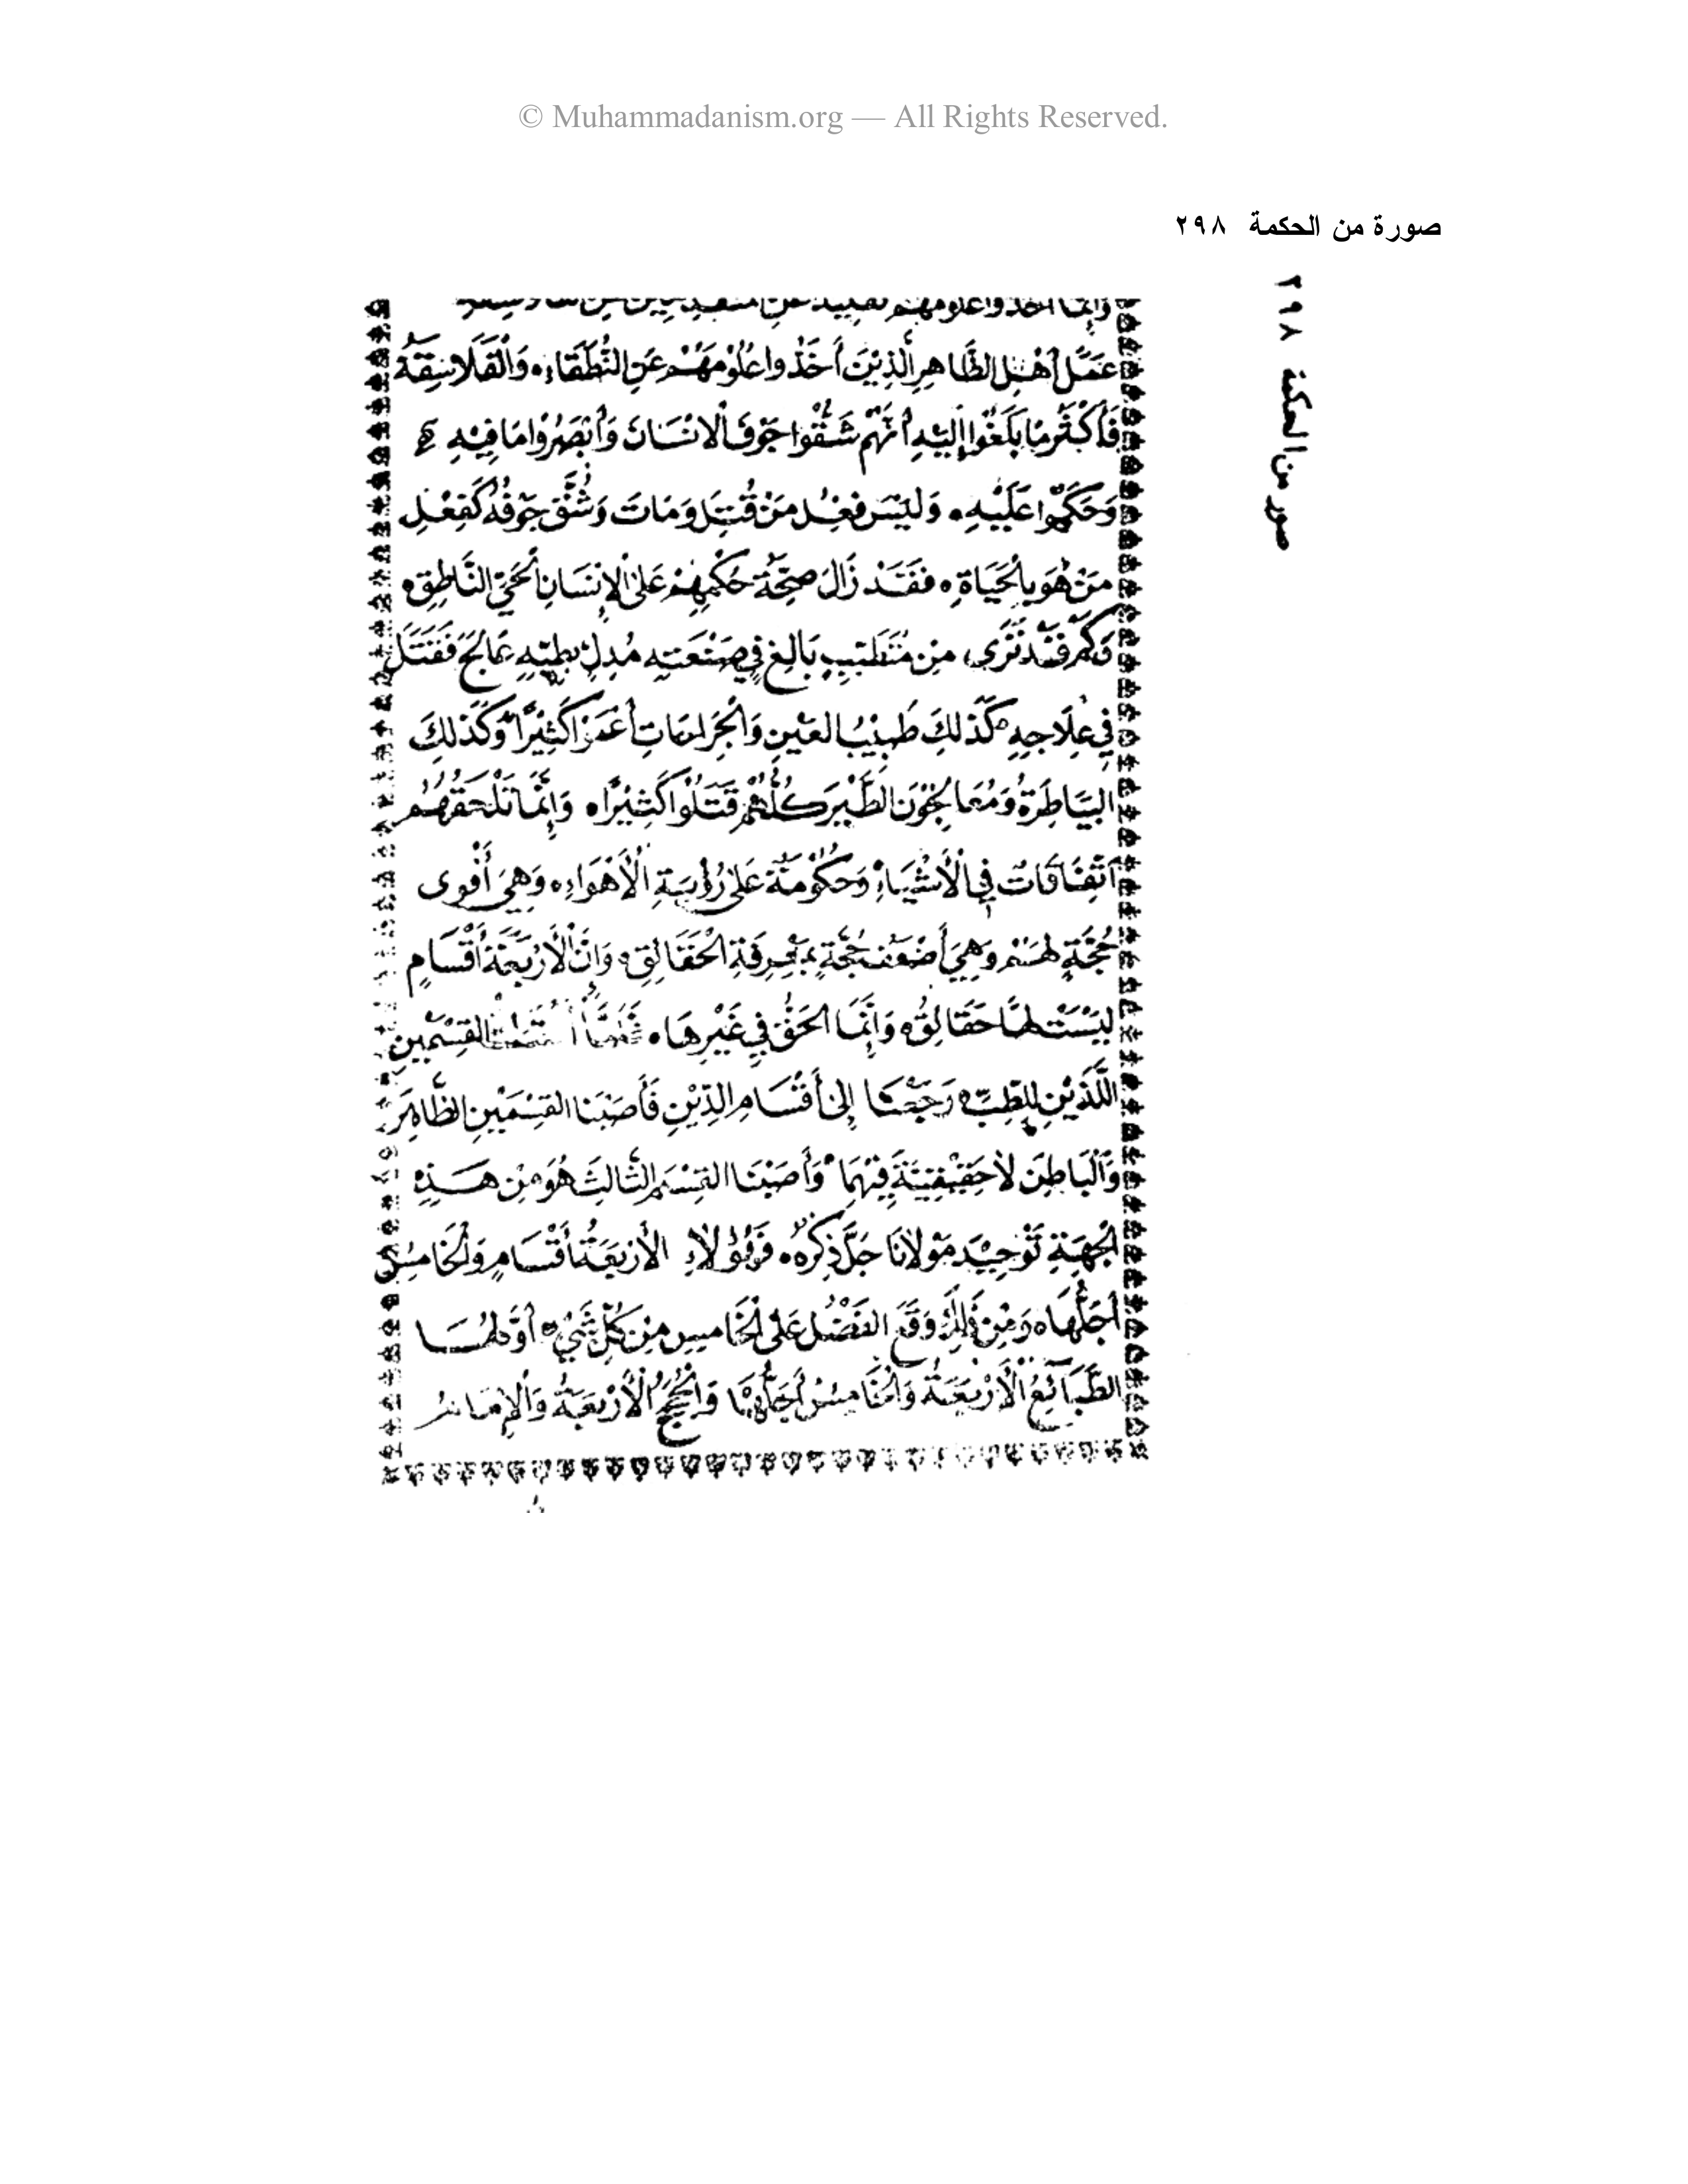 © Muhammadanism.org — All Rights Reserved.
صورة من الحكمة ٢٩٨
٢٩٨ صور من الحكمة
وَإِنَّمَا أَخَذُوا عُلُومَهُمْ
عَمَل أَهْلِ الظَّاهِرِ الَّذِيْنَ أَخَذُوا عُلُوْمَهُمْ عَنِ النُّطَقَاءِ ه وَالْفَلَاسِفَةُ
فَأَكْثَرُ مَا بَلَغُوا إِلَيْهِ أَنَّهُمْ شَقُّوا جَوْفَ الْانْسَانَ وَأَبْصَرُوا مَا فِيْهِ
وَحَكَمُوا عَلَيْهِ ه وَلَيْسَ فِعْلُ مَنْ قُتِلَ وَمَاتَ وَشُقَّ جَوْفُهُ كَفِعْلِ
مَنْ هُوَ بِالْحَيَاةِ ه فَقَدْ زَالَ صِحَّةُ حُكْمِهِمْ عَلَى الْإِنْسَانِ الْحَيِّ النَّاطِقِ ه
وَكَمْ قَدْ نَرَى مِنْ مُتَطَبِّبٍ بَالِغٍ فِي صَنْعَتِهِ مُدِلٍّ بِطِبِّهِ عَالَجَ فَقَتَلَ
فِي عِلَاجِهِ كَذٰلِكَ طَبِيْبُ الْعَيْنِ وَالْجَرَاحَاتِ أَعْمَزَا كَثِيْرًا وَكَذٰلِكَ
البَيَاطِرَةُ وَمُعَالِجُوْنَ الطَّيْرَ كُلُّهُمْ قَتَلُوا كَثِيْرًا ه وَإِنَّمَا تَلْحَقُهُمْ
اتِّفَاقَاتٌ فِي الْأَشْيَاءِ وَحُكُوْمَةٌ عَلَى رُؤْيَةِ الْأَهْوَاءِ ه وَهِيَ أَقْوَى
حُجَّةٍ لَهُمْ وَهِيَ أَضْعَفُ حُجَّةٍ بِمَعْرِفَةِ الْحَقَائِقِ ه وَإِنَّ الْأَرْبَعَةَ أَقْسَامٍ
لَيْسَتْ لَهَا حَقَائِقُ ه وَإِنَّمَا الْحَقُّ فِي غَيْرِهَا ه فَلَمَّا القِسْمَيْنِ
اللَّذَيْنِ لِلطِّبِّ ه رَجَعْنَا إِلَى أَقْسَامِ الدِّيْنِ فَأَصَبْنَا القِسْمَيْنِ الظَّاهِرَ
وَالْبَاطِنَ لَا حَقِيْقِيَّةَ فِيْهِمَا وَأَصَبْنَا القِسْمَ الثَّالِثَ هُوَ مِنْ هَذِهِ
الْجِهَةِ تَوْحِيْدَ مَوْلَانَا جَلَّ ذِكْرُهُ ه فَهٰؤُلَاءِ الْأَرْبَعَةُ أَقْسَامٍ وَالْخَامِسُ
أَجَلُّهَا ه وَمِنْ ذٰلِكَ وَقَعَ الفَضْلُ عَلَى الْخَامِسِ مِنْ كُلِّ شَيْءٍ ه أَوَّلُهَا
الطَّبَائِعُ الْأَرْبَعَةُ وَالْخَامِسُ أَجَلُّهَا وَالْحُجَجُ الْأَرْبَعَةُ وَالْإِمَامُ